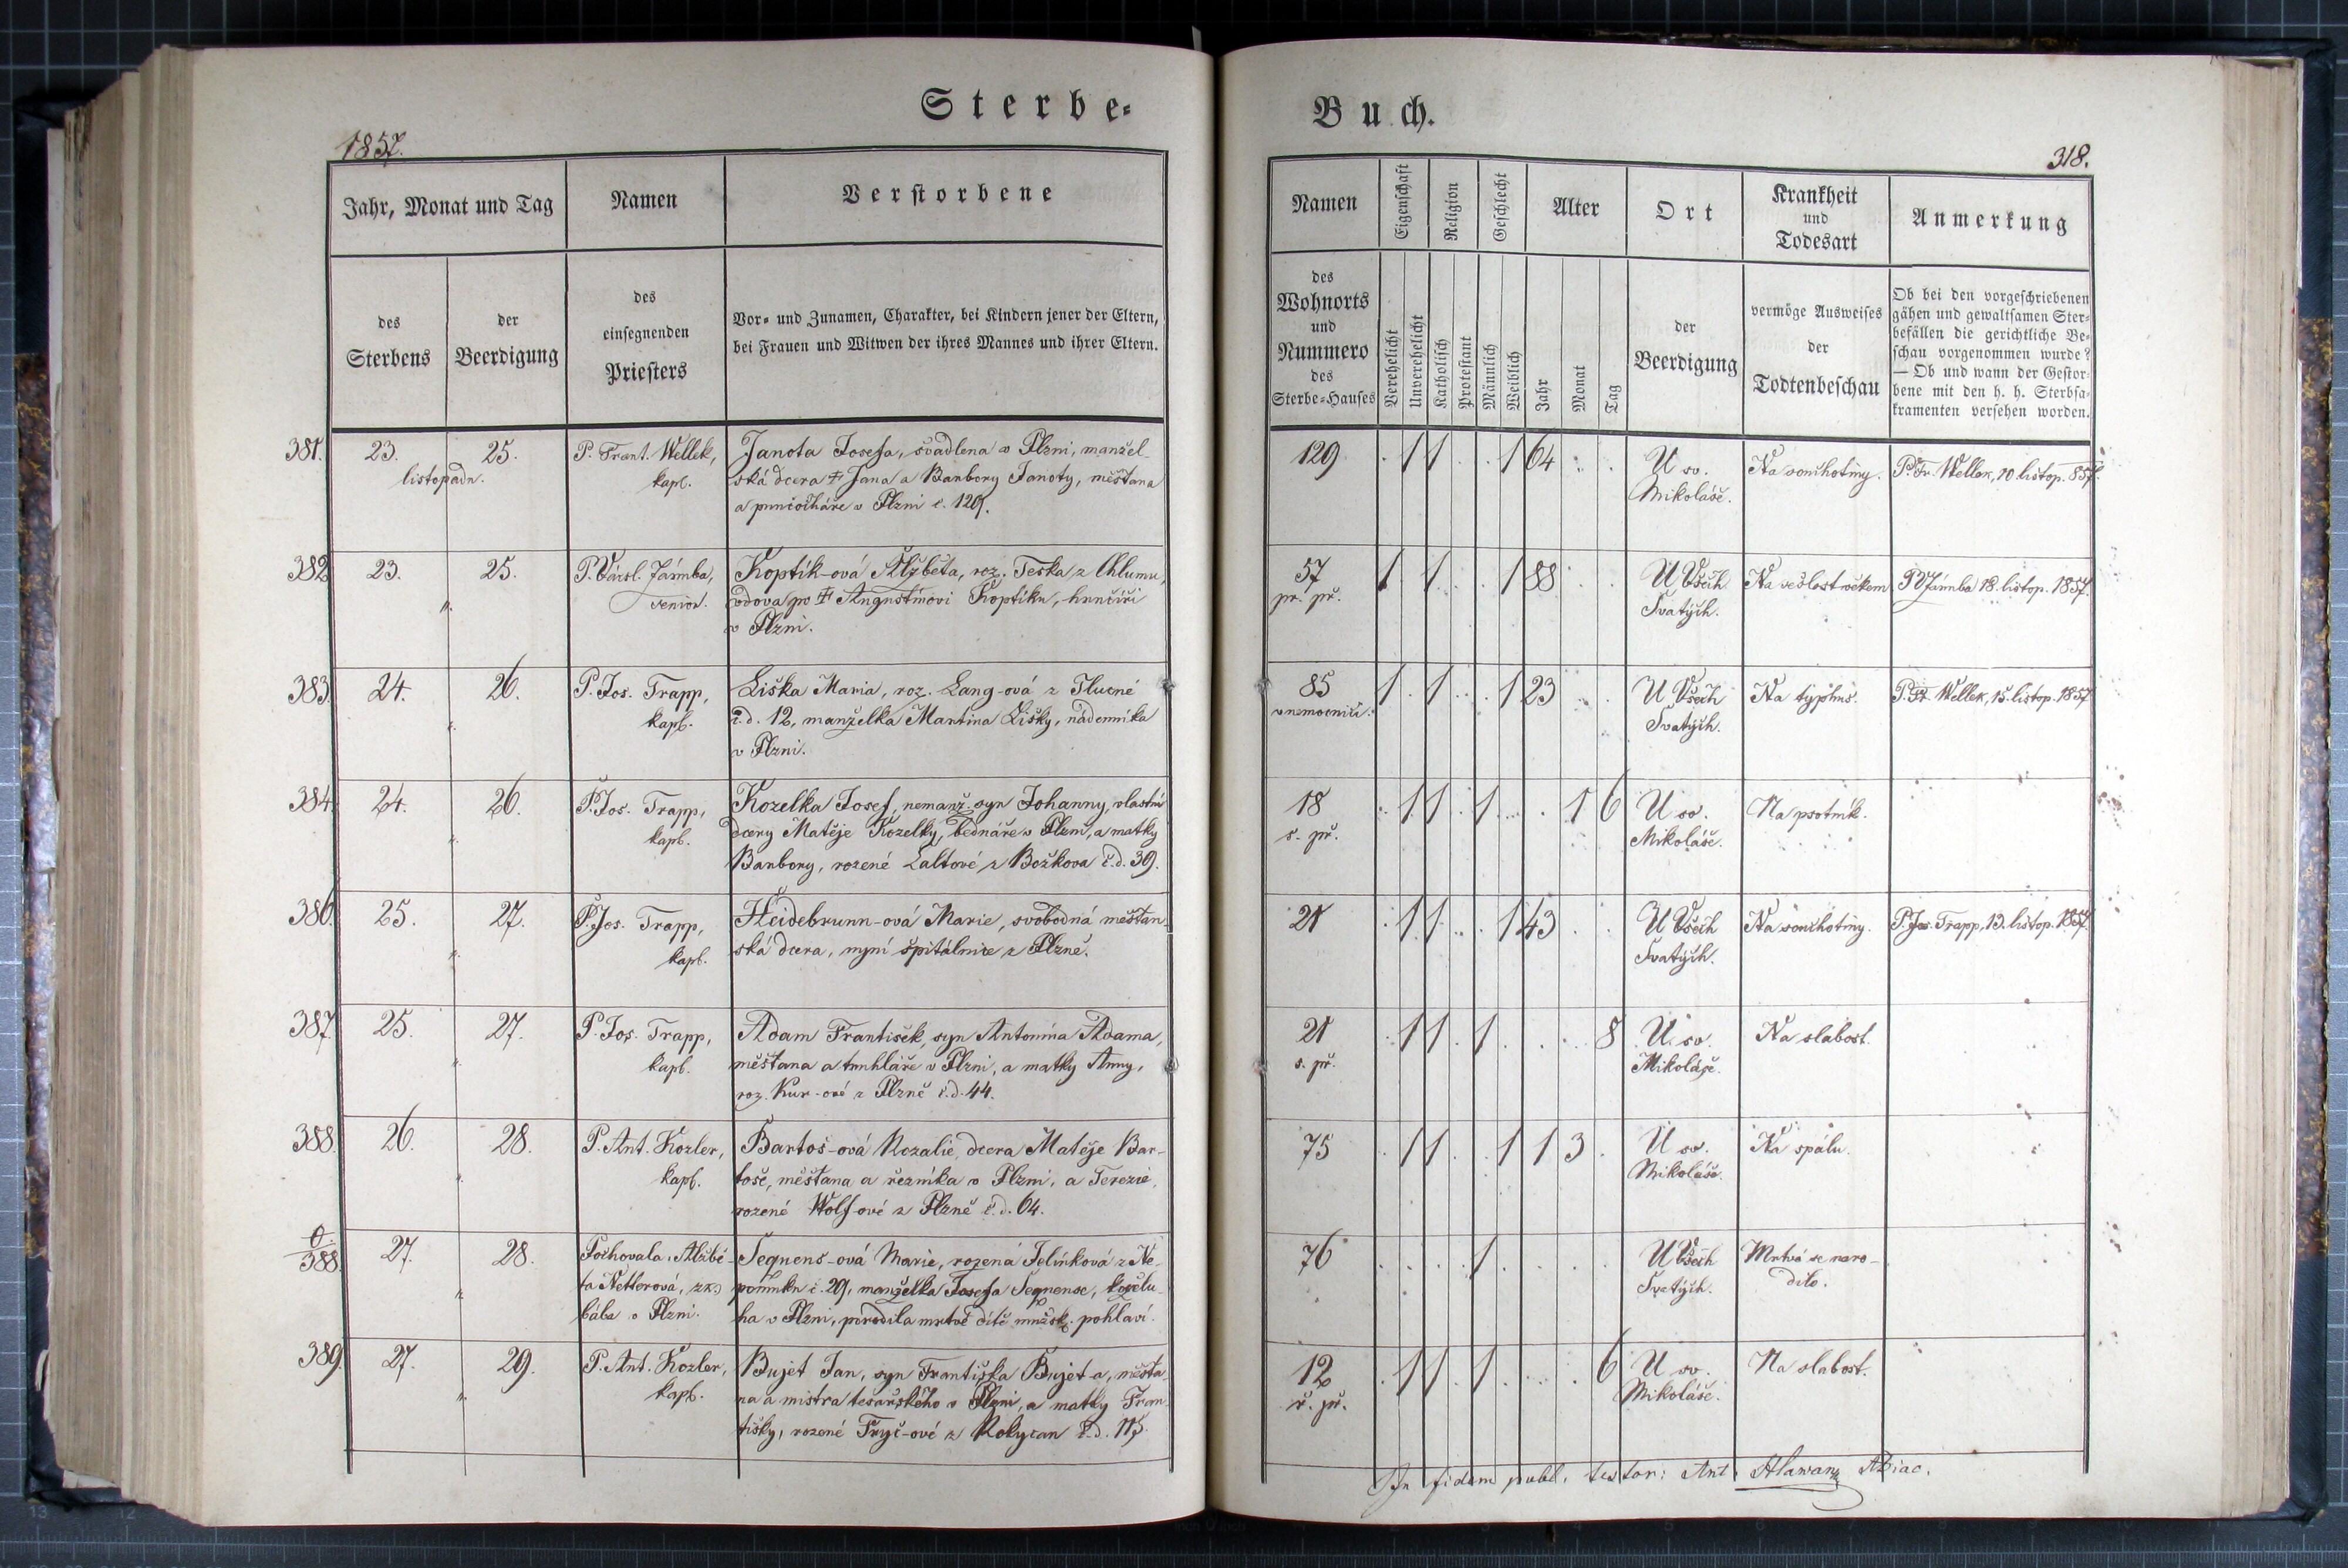 Sterbe=
1857.
Jahr, Monat und Tag
Namen
Verstorbene
des
Sterbens
der
Beerdigung
des
einsegnenden
Priesters
Vor= und Zunamen, Charakter, bei Kindern jener der Eltern,
bei Frauen und Witwen der ihres Mannes und ihrer Eltern.
381. 23. 25. P. Frant. Wellek, Janota Josefa, švadlena v Plzni, manžel-
listopadu. kapl. ská dcera † Jana a Barbory Janoty, měšťana
a punčocháře v Plzni č. 129.
382 23. 25. P. Vácsl. Jarmba, Koptik-ová Alžběta, roz. Teska z Chlumu,
„ senior. vdova po † Augustinovi Koptiku, hrnčíři
v Plzni.
383. 24. 26. P. Jos. Trapp, Liška Maria, roz. Lang-ová z Tlucné
„ kapl. č.d. 12, manželka Martina Lišky, nádenníka
v Plzni.
384. 24. 26. P. Jos. Trapp, Kozelka Josef, nemanž. syn Johanny, vlastní
„ kapl. dcery Matěje Kozelky, bednáře v Plzni, a matky
Barbory, rozené Laltové z Božkova č.d. 39.
386. 25. 27. P. Jos. Trapp, Heidebrunn-ová Marie, svobodná měšťan-
„ kapl. ská dcera, nyní špitálnice z Plzně.
387. 25. 27. P. Jos. Trapp, Adam František, syn Antonína Adama,
„ kapl. měšťana a truhláře v Plzni, a matky Anny,
roz. Kur-ové z Plzně č.d. 44.
388. 26. 28. P. Ant. Kozler, Bartoš-ová Rozalie, dcera Matěje Bar-
„ kapl. toše, měšťana a řezníka v Plzni, a Terezie,
rozené Wolf-ové z Plzně č.d. 64.
0/388. 27. 28. Pochovala Alžbě- Sequens-ová Marie, rozená Jelínková z Ne-
„ ta Netlerová, zk. pomuku č. 29, manželka Josefa Sequense, koželu-
bába v Plzni. ha v Plzni, porodila mrtvé dítě mužsk. pohlaví.
389. 27. 29. P. Ant. Kozler, Bujet Jan, syn Františka Bujet-a, měšťa-
„ kapl. na a mistra tesařského v Plzni, a matky Fran-
tišky, rozené Fryč-ové z Rokycan č.d. 115.
Buch.
318.
Namen
Eigenschaft
Religion
Geschlecht
Alter
Ort
Krankheit
und
Todesart
Anmerkung
des
Wohnorts
und
Nummero
des
Sterbe=Hauses
Verehelicht
Unverehelicht
Katholisch
Protestant
Männlich
Weiblich
Jahr
Monat
Tag
der
Beerdigung
vermöge Ausweises
der
Todtenbeschau
Ob bei den vorgeschriebenen
gähen und gewaltsamen Ster=
befällen die gerichtliche Be=
schau vorgenommen wurde?
— Ob und wann der Gestor=
bene mit den h. h. Sterbsa=
kramenten versehen worden.
129 . 1 1 . . 1 64 . . U sv. Na souchotiny. P. Fr. Wellek, 10 listop. 857.
Mikoláše.
57 1 . 1 . . 1 88 . . U Všech Na sešlost věkem P V Jarmba 18. listop. 1857.
pr. př. Svatých.
85 1 . 1 . . 1 23 . . U Všech Na typhus. P. Fr. Wellek, 15. listop. 1857
v nemocnici. Svatých.
18 . 1 1 . 1 . . 1 6 U sv. Na psotník.
s. př. Mikoláše.
21 . 1 1 . . 1 43 . . U Všech Na souchotiny. P. Jos. Trapp, 13. listop. 1857.
Svatých.
21 . 1 1 . 1 . . . 8 U sv. Na slabost.
s. př. Mikoláše.
75 . 1 1 . . 1 1 3 . U sv. Na spálu.
Mikoláše.
76 . . . . 1 . . . . U Všech Mrtvé se naro-
Svatých. dilo.
12 . 1 1 . 1 . . . 6 U sv. Na slabost.
ř. př. Mikoláše.
In fidem publ. testor: Ant. Hlawan